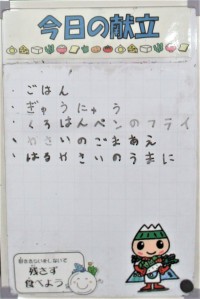 今日の献立
・ごはん
・ぎゅうにゅう
・くろはんぺんのフライ
・やさいのごまあえ
・はるやさいのうまに
残さず
食べよう